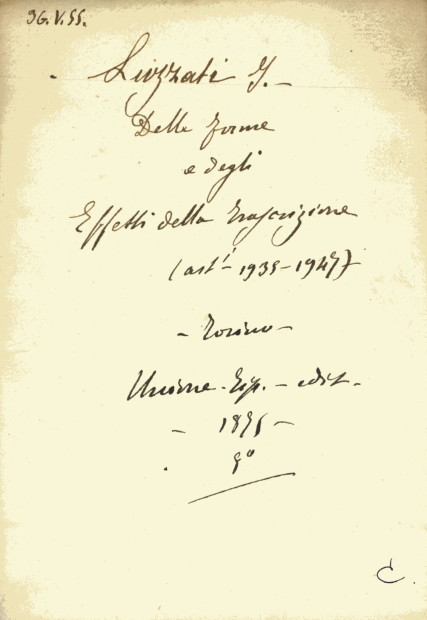 96.V.55.
Luzzati I.-
Delle forme
e degli
Effetti della Trascrizione
(arti 1935-1947)
- Torino -
Unione-Tip.- edit.-
8º
C.